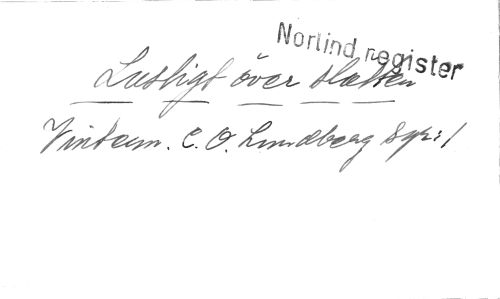 Norlind register
Lustigt över slätten
Vintern. C. O. Lundberg Syr: 1